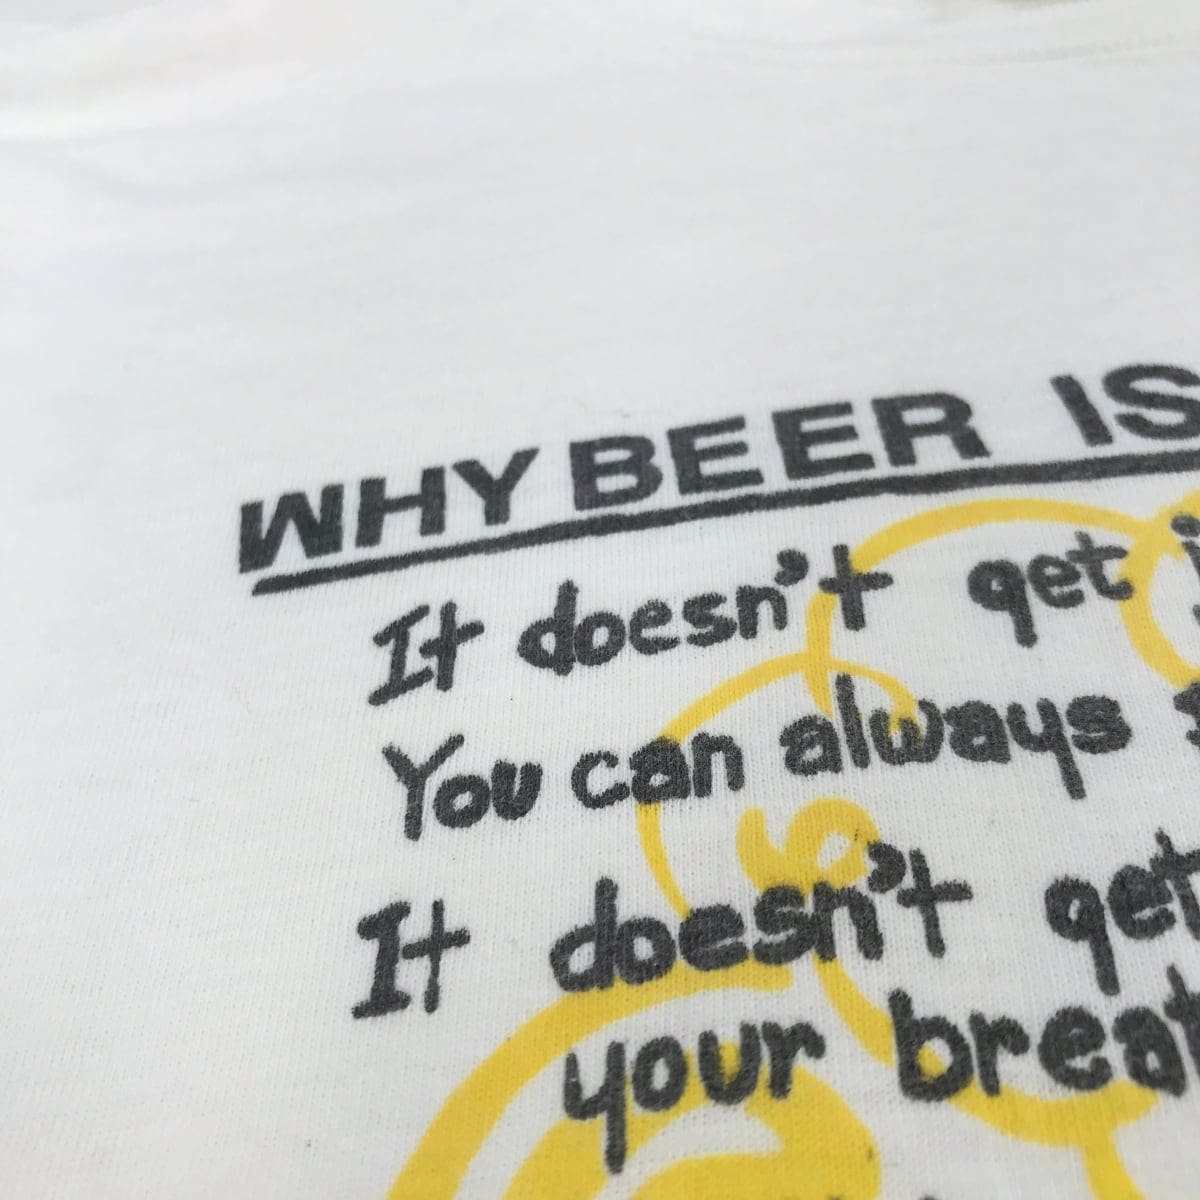 WHY BEER IS
It doesn't get
You can always
It doesn't get
your